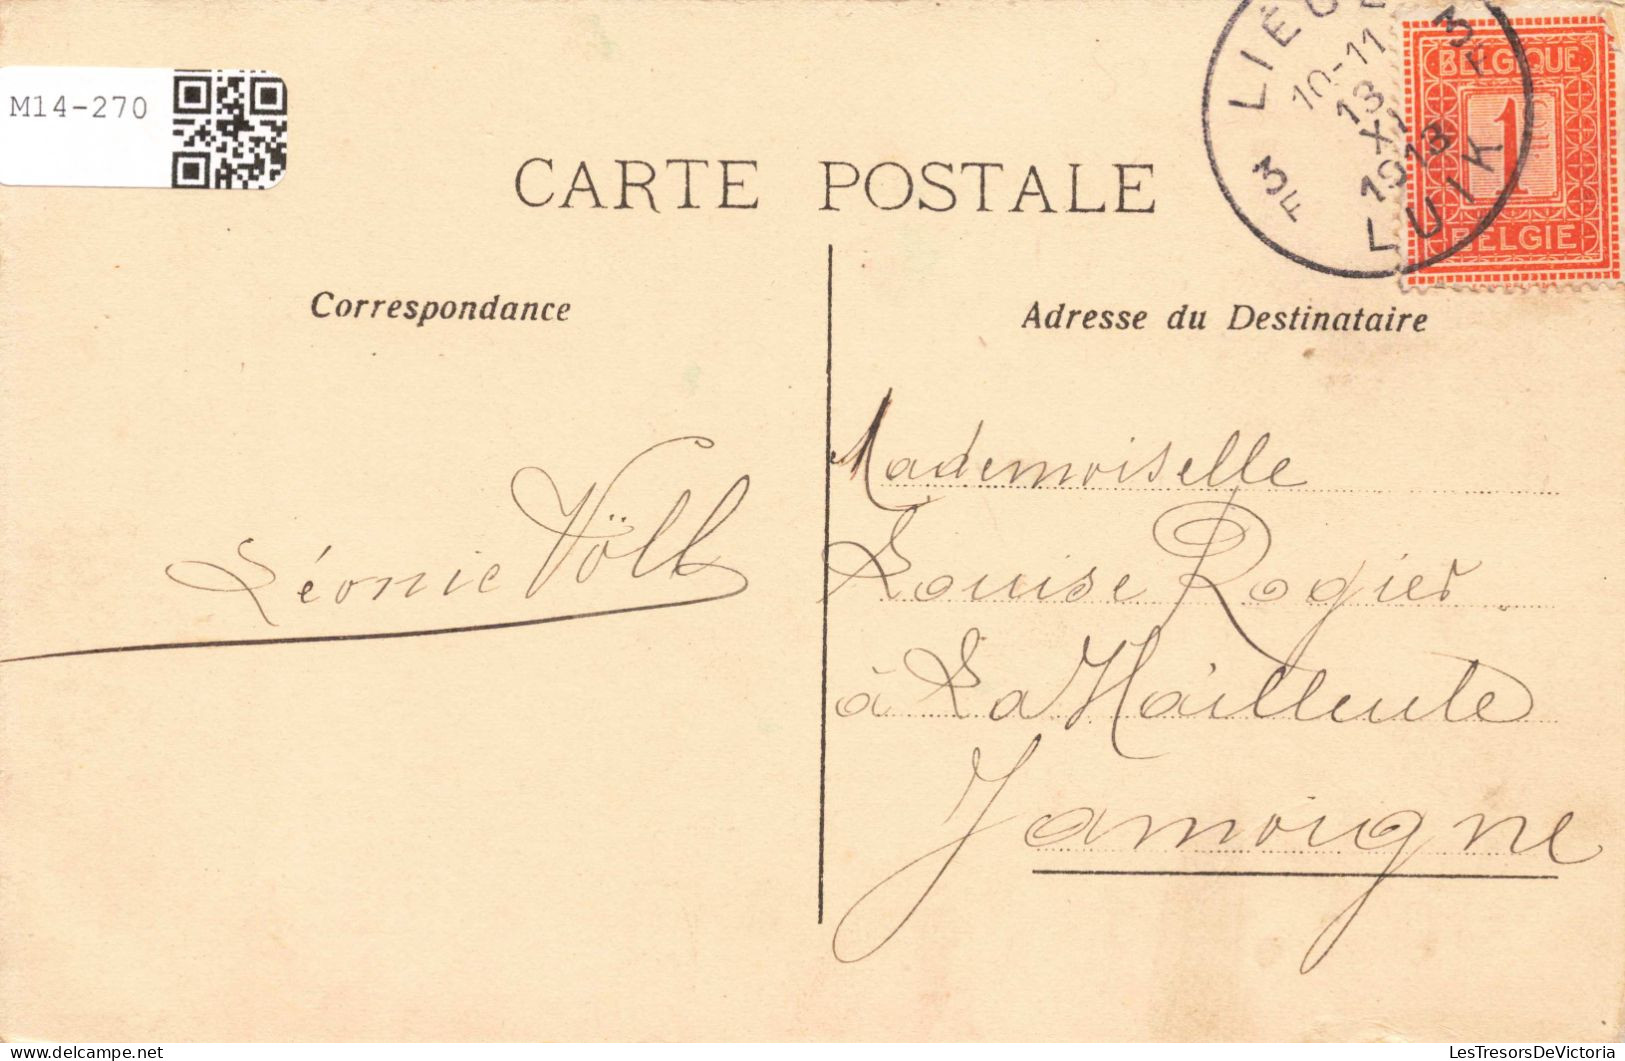 M14-270
CARTE POSTALE
LIÉGE
10-11
13
XI
1913
LUIK
3F
3F
BELGIQUE
1
BELGIE
Correspondance
Adresse du Destinataire
Léonie Völl
Mademoiselle
Louise Rogier
à La Hailleule
Jamoigne
LesTresorsDeVictoria